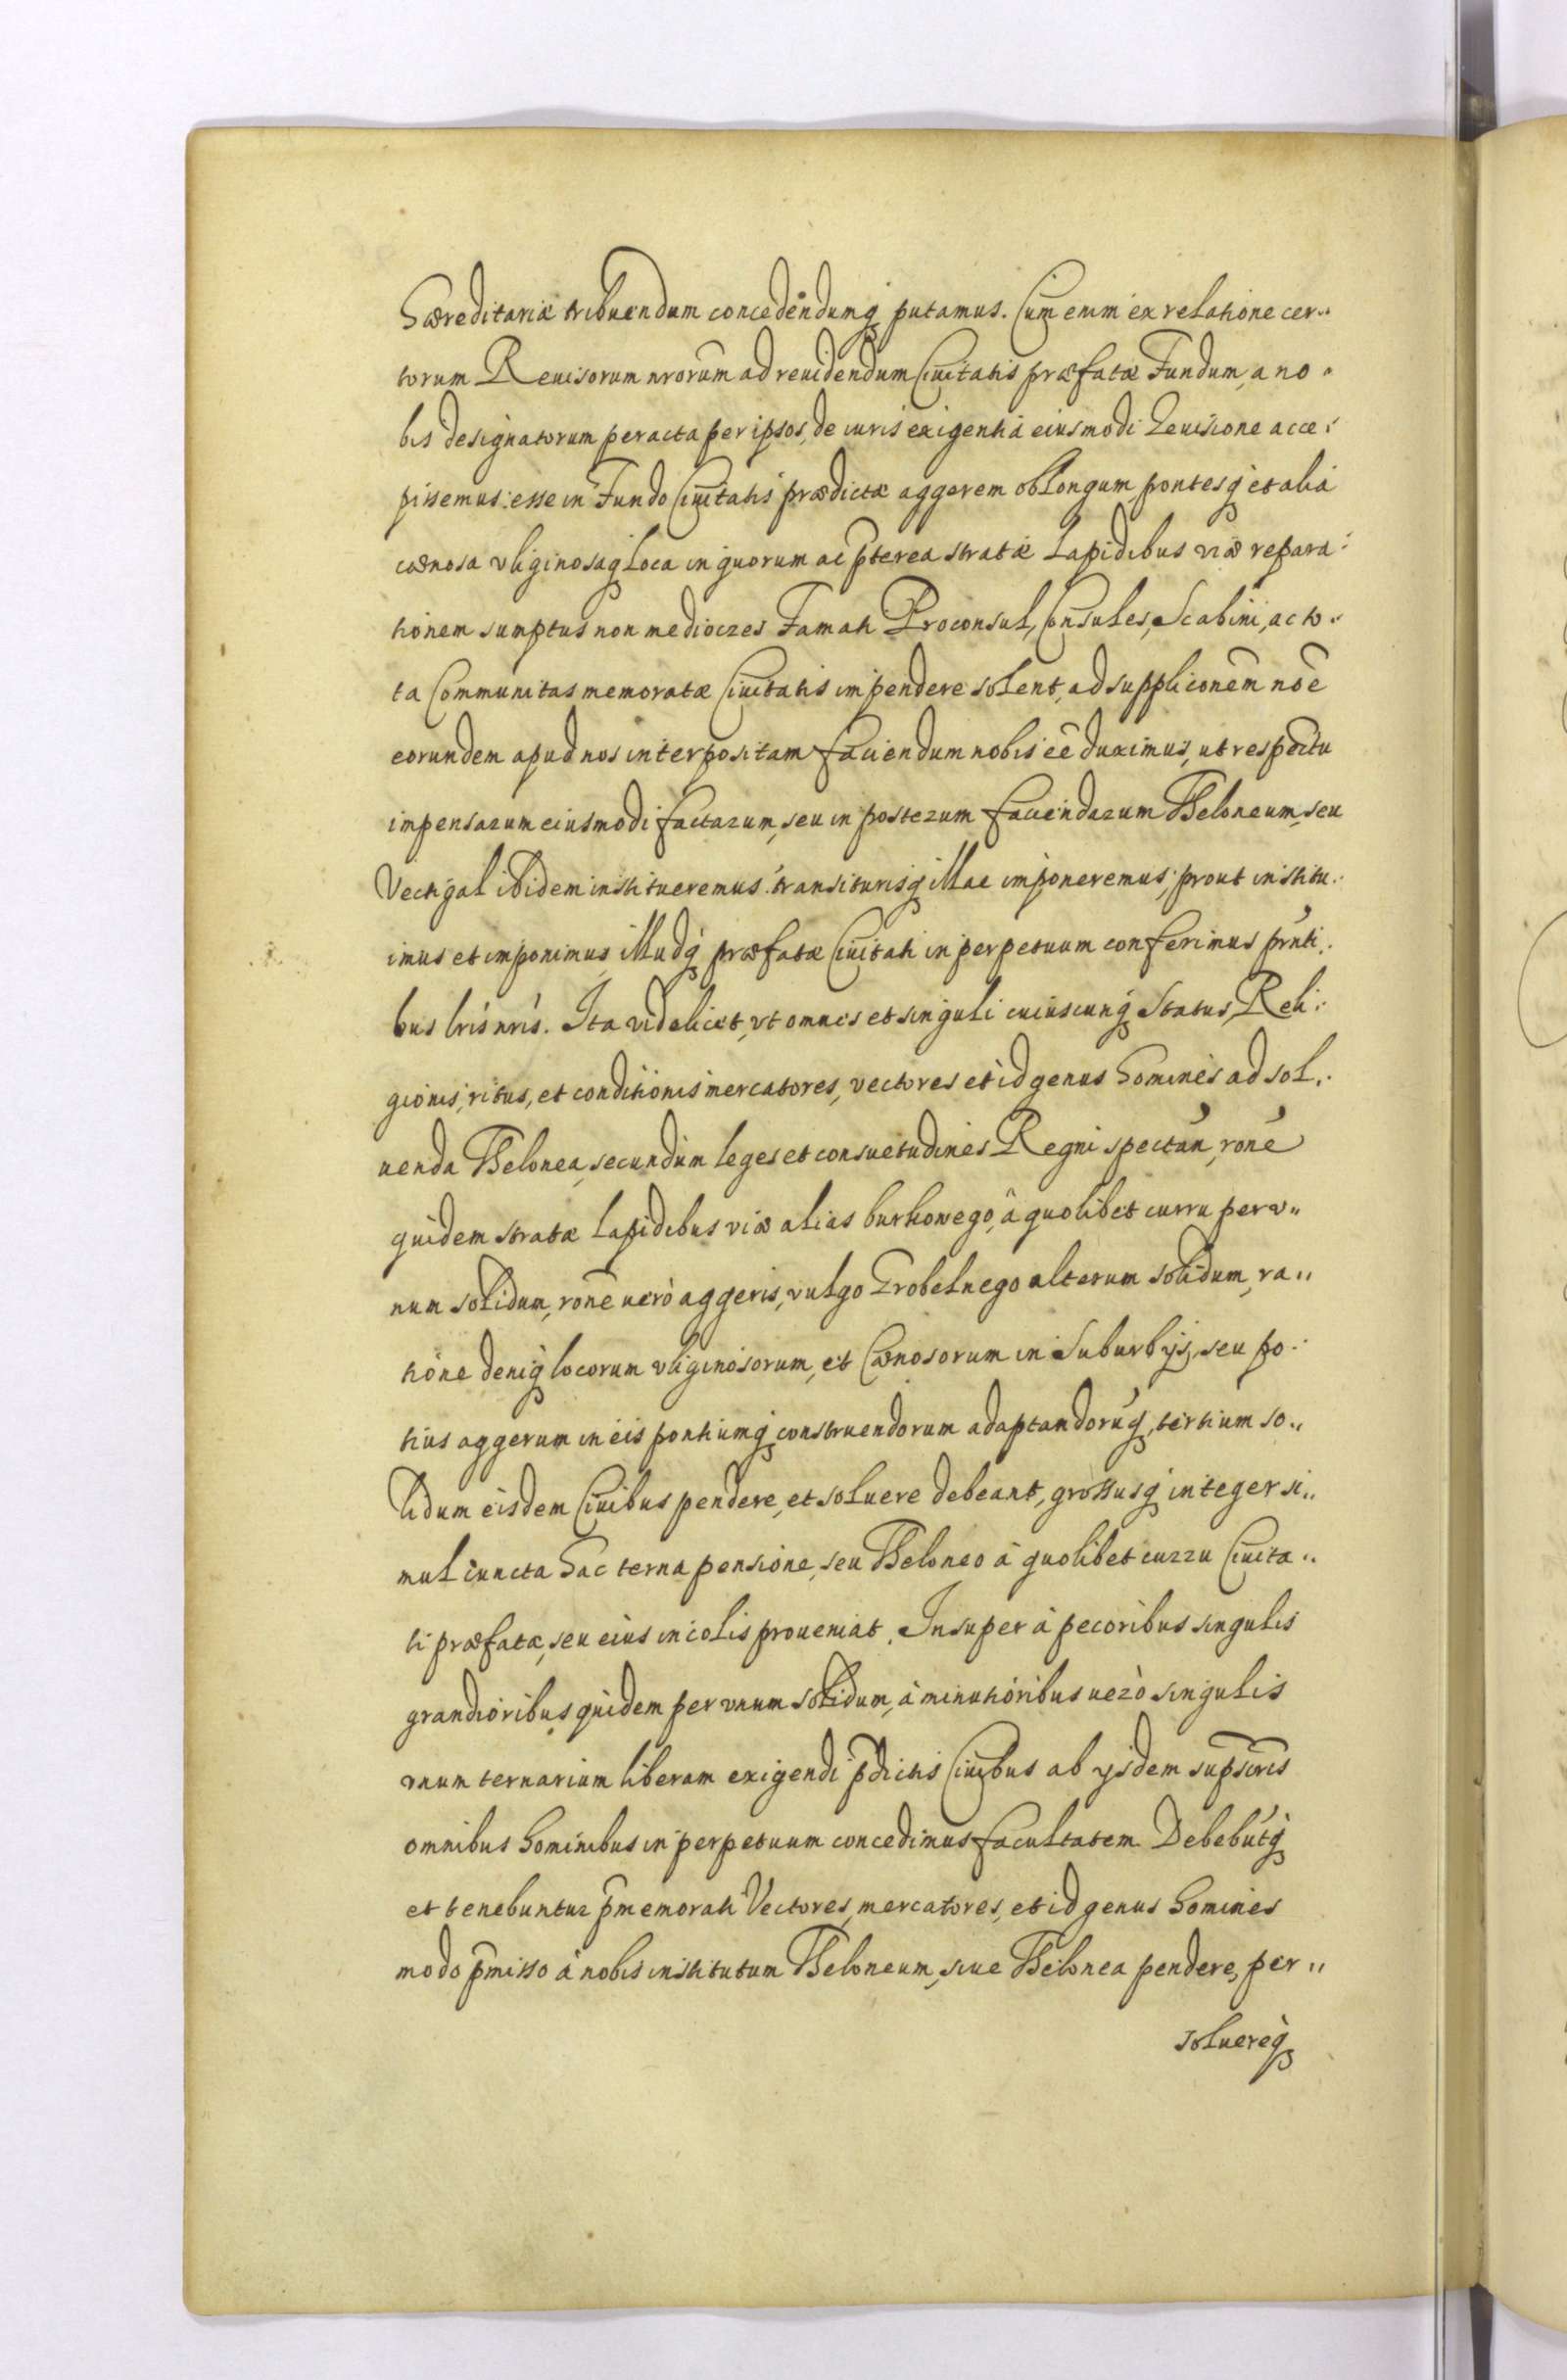 Hæreditariæ tribuendum concedendumq; putamus. Cum enim ex relatione cer„
torum Reuisorum nrorum ad reuidendum Ciuitatis præfatæ Fundum, a no„
bis designatorum peracta per ipsos, de iuris exigentia eiusmodi Reuisione acce„
pissemus: esse in Fundo Ciuitatis prædictæ aggerem oblongum, pontesq; et alia
cænosa vliginosaq; loca in quorum ac pterea stratæ Lapidibus viæ repara„
tionem sumptus non mediocres Famati Proconsul, Consules, Scabini, ac to„
ta Communitas memoratæ Ciuitatis impendere solent, ad suppliconem noe
eorundem apud nos interpositam faciendum nobis ee duximus, ut respectu
impensarum eiusmodi factarum, seu in posterum faciendarum Theloneum, seu
Vectigal ibidem institueremus: transiturisq; illac imponeremus, prout institu„
imus et imponimus, illudq; præfatæ Ciuitati in perpetuum conferimus pnti„
bus lris nris. Ita videlicet, vt omnes et singuli cuiuscunq; Status, Reli„
gionis, ritus, et conditionis mercatores, vectores et id genus homines ad sol„
uenda Thelonea, secundum leges et consuetudines Regni spectan, rone
quidem stratæ Lapidibus viæ alias burkowego, à quolibet curru per v„
num solidum, rone uerò aggeris, vulgo Grobelnego alterum solidum, ra„
tione deniq; locorum vliginosorum, et Cænosorum in Suburbijs, seu po„
tius aggerum in eis pontiumq; construendorum adaptandoruq;, tertium so„
lidum eisdem Ciuibus pendere, et soluere debeant, grossusq; integer si„
mul iuncta hac terna pensione, seu Theloneo à quolibet curru Ciuita„
ti præfatæ, seu eius incolis proueniat. Insuper à pecoribus singulis
grandioribus quidem per vnum solidum, à minutioribus uerò singulis
vnum ternarium liberam exigendi pdictis Ciuibus ab ijsdem supscris
omnibus hominibus in perpetuum concedimus facultatem. Debebutq;
et tenebuntur pmemorati Vectores, mercatores, et id genus homines
modo pmisso à nobis institutum Theloneum, siue Thelonea pendere, per„
soluereq;